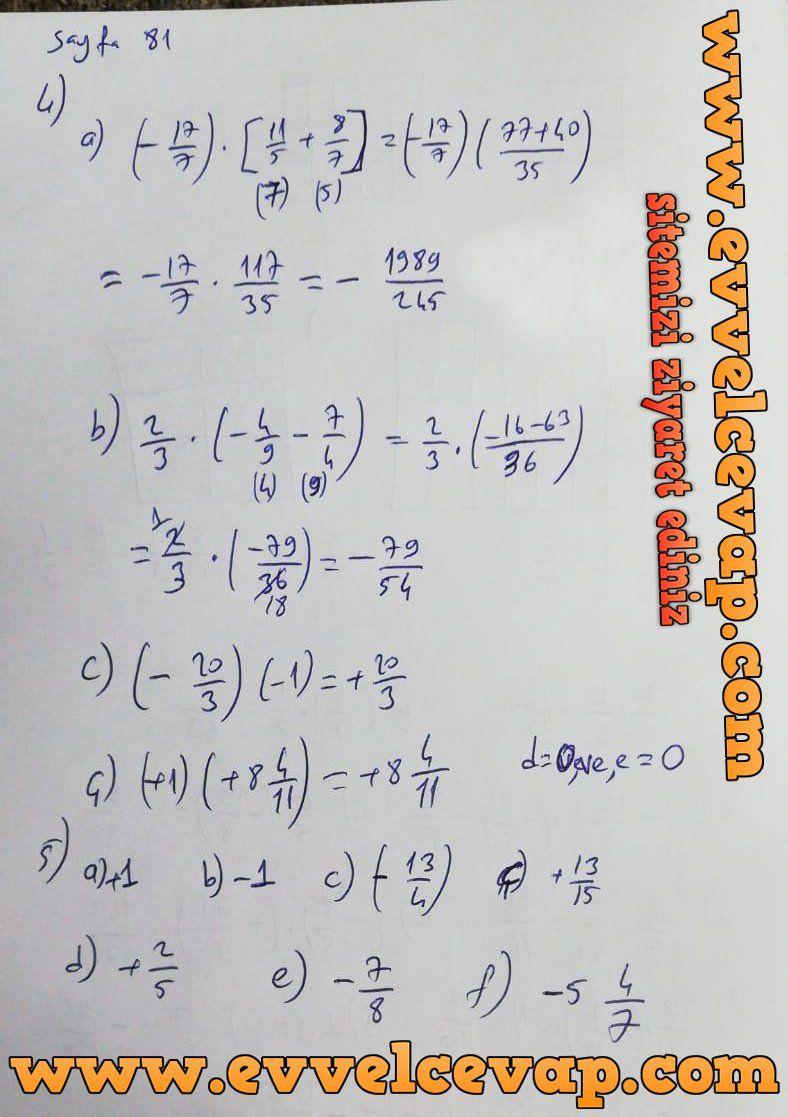 Sayfa 81
4)
a) (- 17/7) · [11/5 + 8/7] = (- 17/7) ( 77+40 / 35 )
(7) (5)
= - 17/7 · 117/35 = - 1989/245
b) 2/3 · (- 4/9 - 7/4) = 2/3 · ( -16-63 / 36 )
(4) (9)
= 2/3 · ( -79/36 ) = - 79/54
1
18
c) (- 20/3) (-1) = + 20/3
ç) (+1) (+8 4/11) = +8 4/11 d=0, ve, e = 0
5) a) +1 b) -1 c) (- 13/4) ç) + 13/15
d) + 2/5 e) - 7/8 f) -5 4/7
www.evvelcevap.com
sitemizi ziyaret ediniz
www.evvelcevap.com